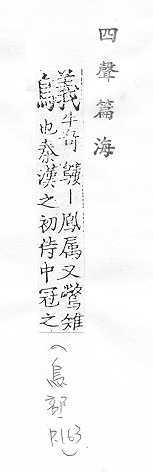 四聲篇海
鸃牛奇丨鳳属又鷩雉
也秦漢之初侍中冠之
(鳥部 P.163)